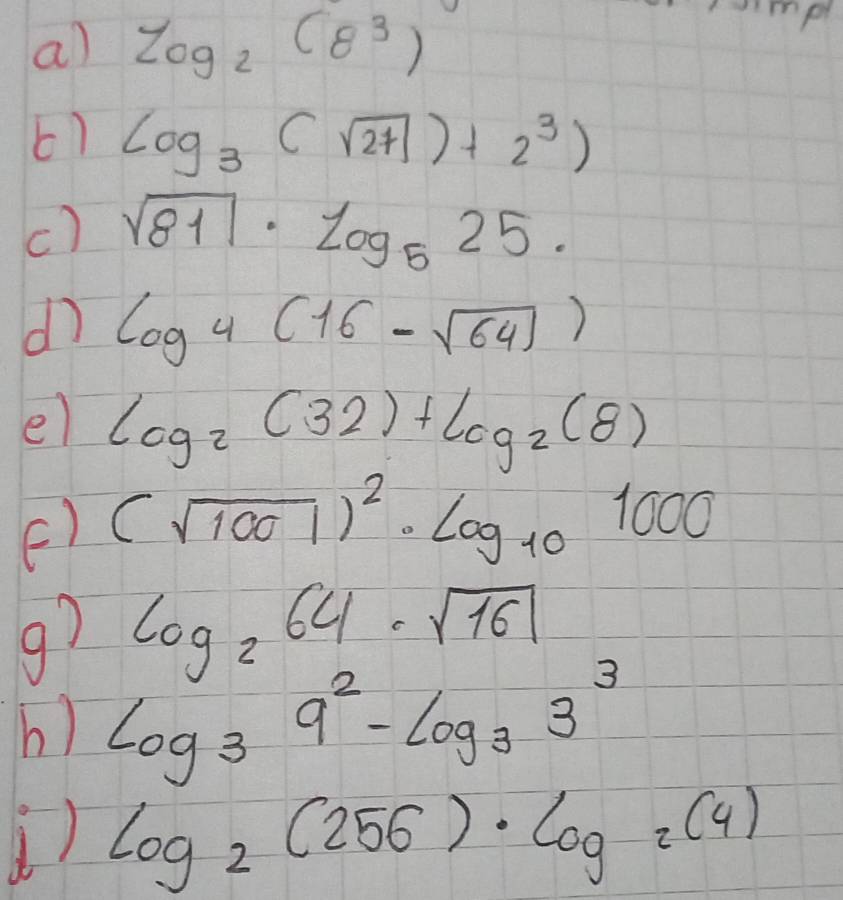 a) Log₂ (8³)
b) Log₃ (√27) + 2³)
c) √81 · Log₅ 25.
d) Log 4 (16 - √64)
e) Log₂ (32) + Log₂ (8)
f) (√100)² · Log₁₀ 1000
g) Log₂ 64 · √16
h) Log₃ 9² - Log₃ 3³
i) Log₂ (256) · Log ₂(4)